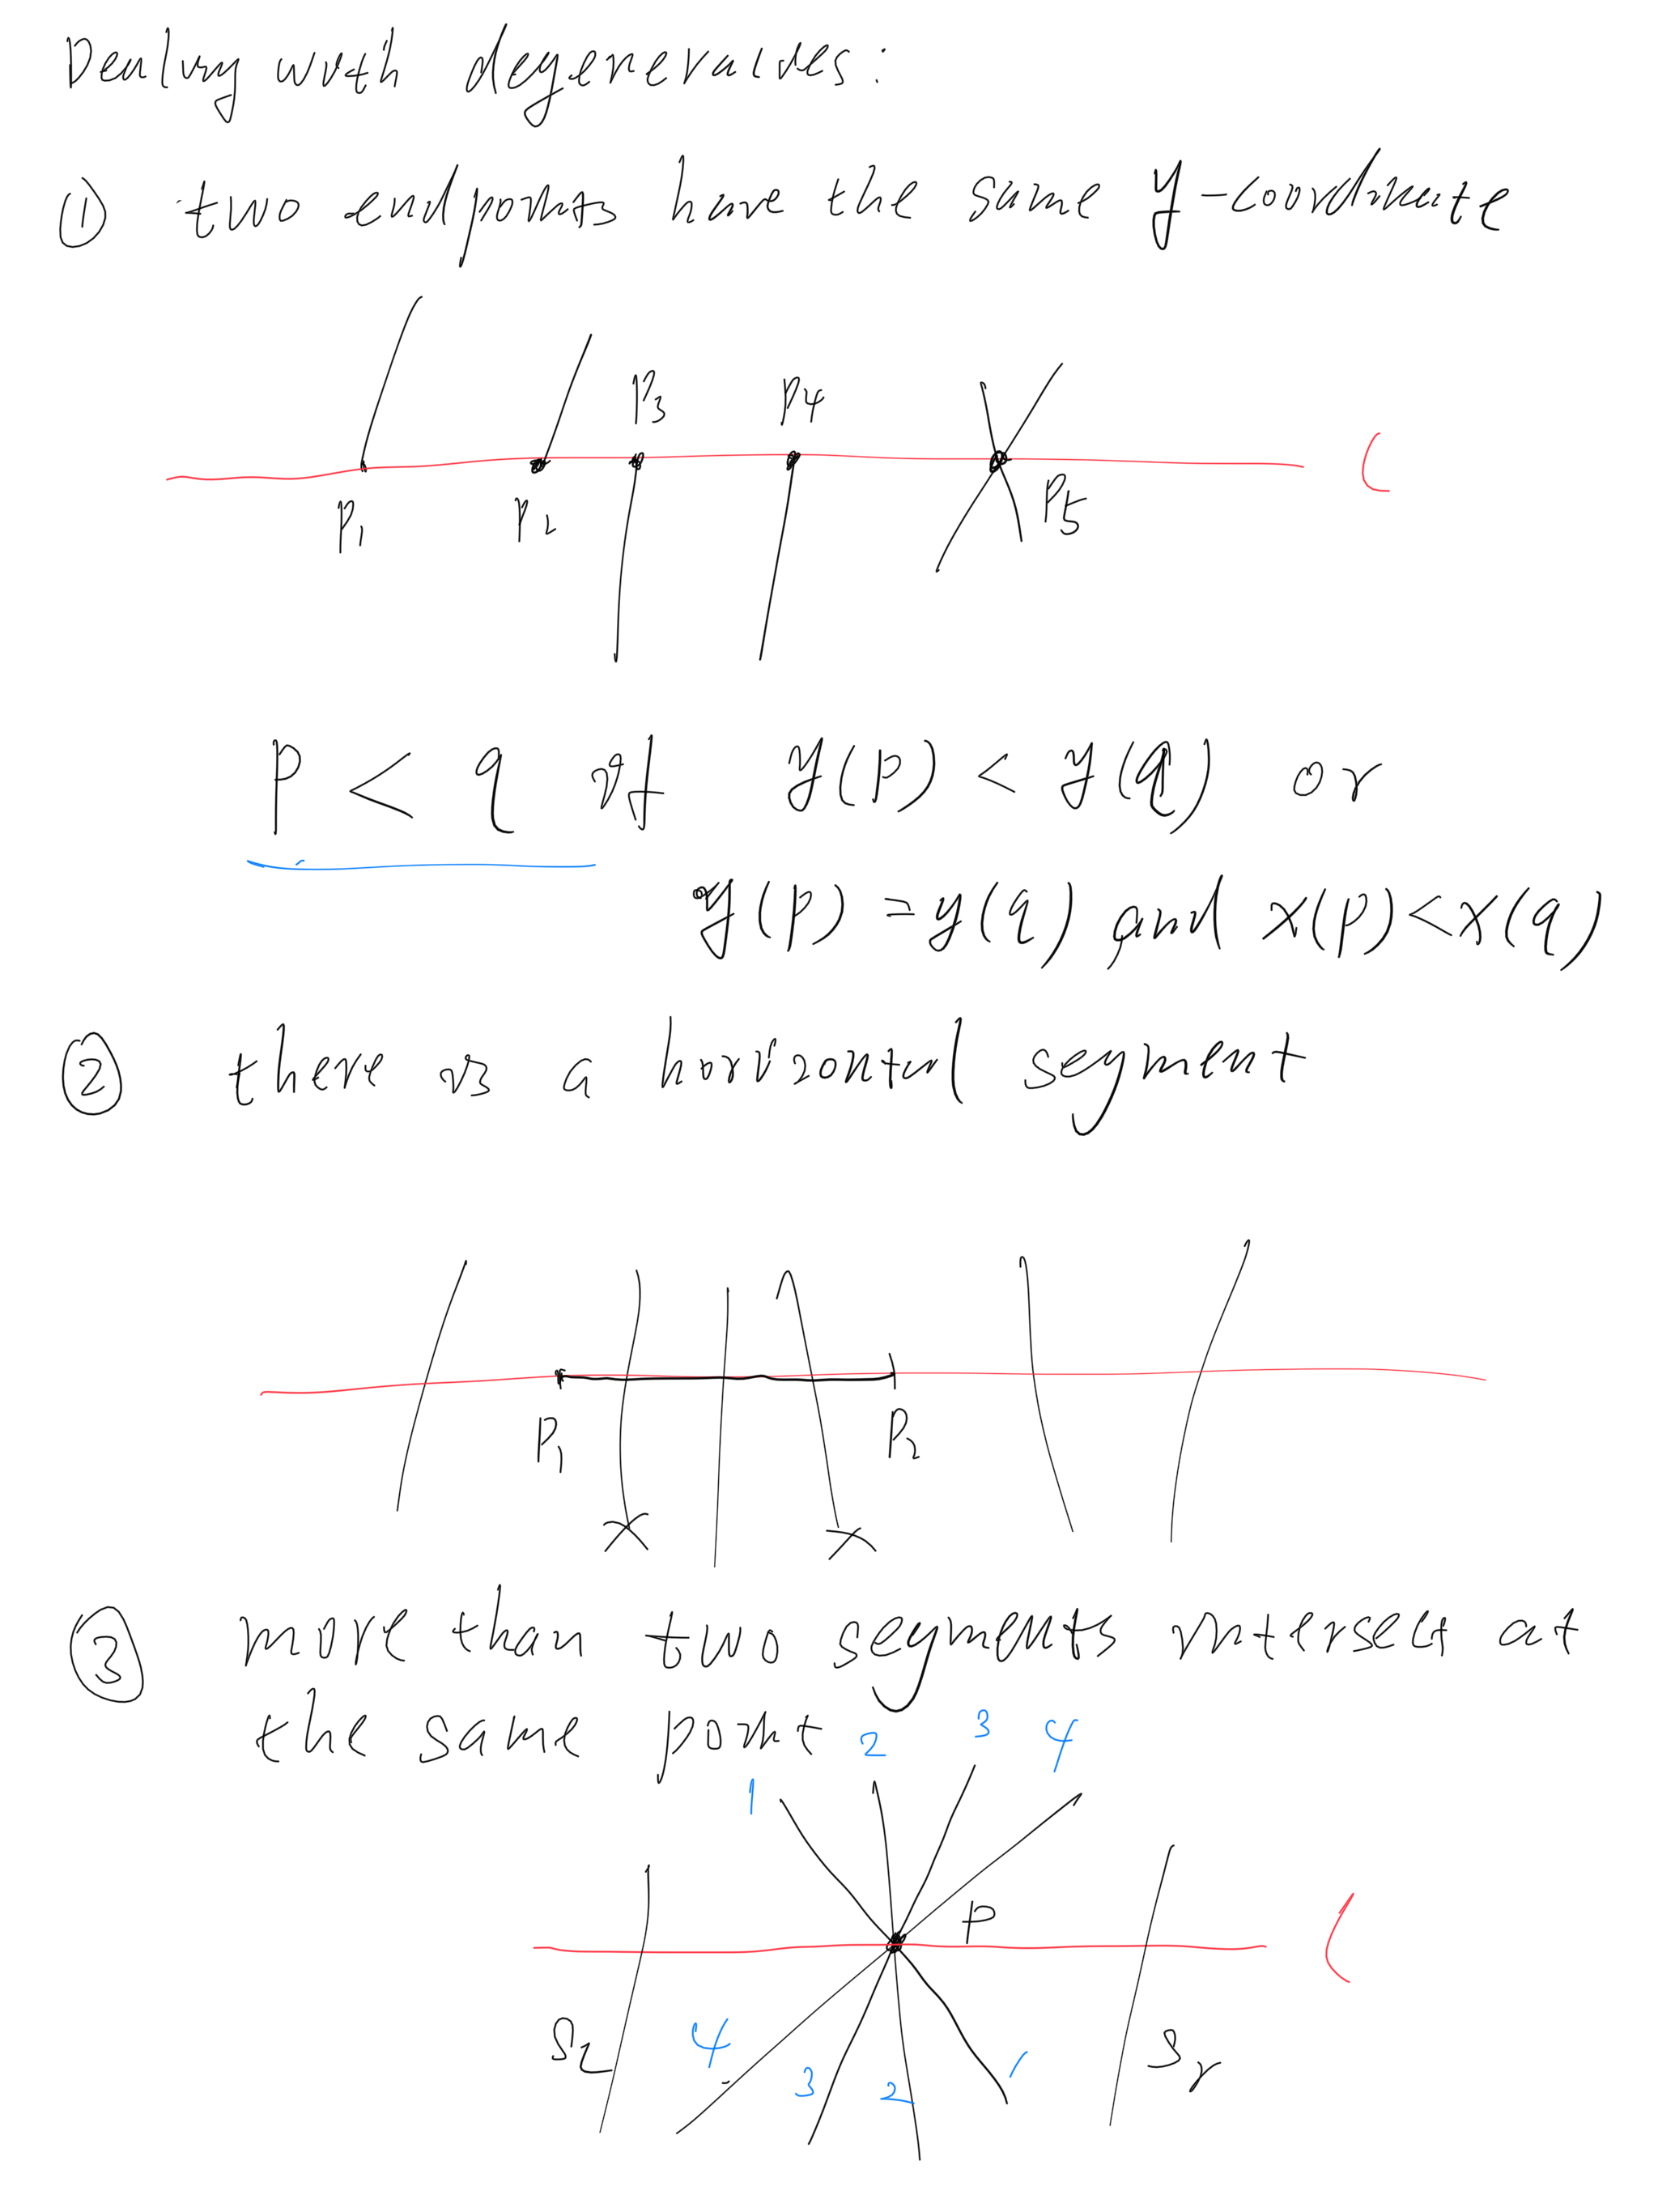 Dealing with degeneracies:
① two endpoints have the same y-coordinate
P3 P4
P1 P2 P5
P < q if y(p) < y(q) or
y(p) = y(q) and x(p) < x(q)
② there is a horizontal segment
P1 P2
③ more than two segments intersect at
the same point
1 2 3 4
P
S2 4 3 2 1 Sr